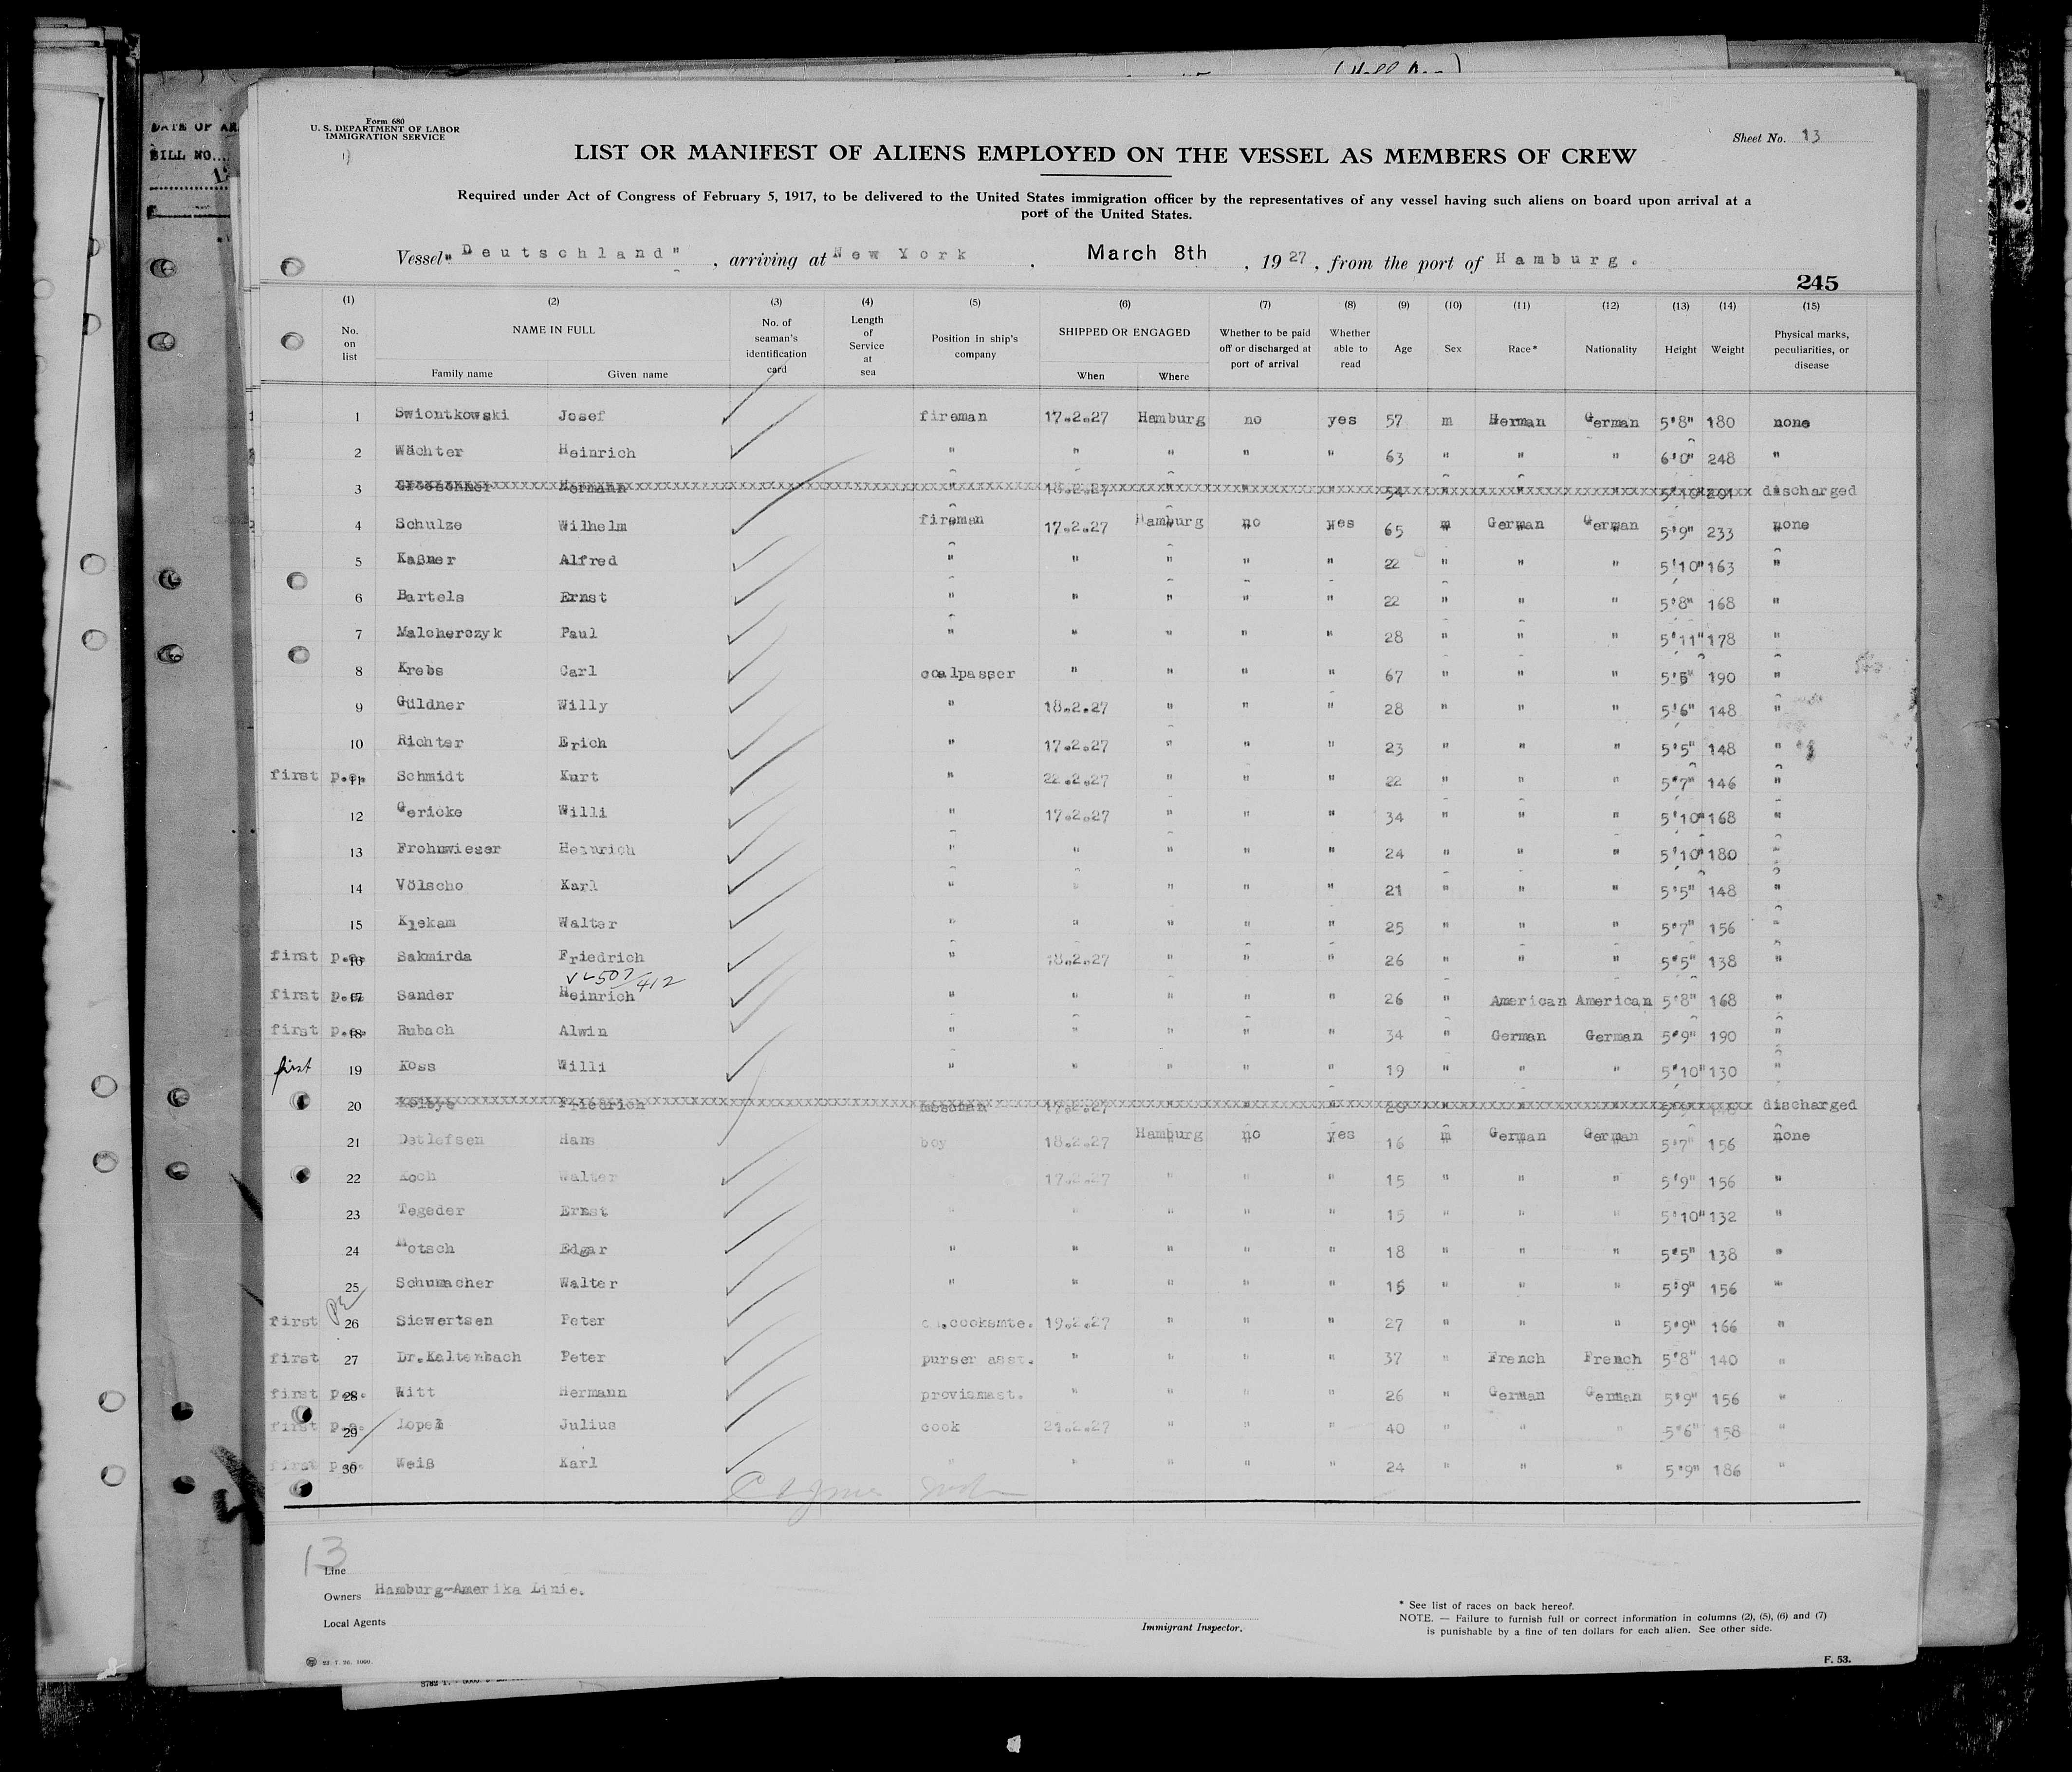 DATE OF AR
BILL NO...
Form 680
U. S. DEPARTMENT OF LABOR
IMMIGRATION SERVICE
Sheet No. 13
LIST OR MANIFEST OF ALIENS EMPLOYED ON THE VESSEL AS MEMBERS OF CREW
Required under Act of Congress of February 5, 1917, to be delivered to the United States immigration officer by the representatives of any vessel having such aliens on board upon arrival at a
port of the United States.
Vessel "Deutschland", arriving at New York, March 8th, 1927, from the port of Hamburg.
245
(1) (2) (3) (4) (5) (6) (7) (8) (9) (10) (11) (12) (13) (14) (15)
No. on list NAME IN FULL Family name Given name No. of seaman's identification card Length of Service at sea Position in ship's company SHIPPED OR ENGAGED When Where Whether to be paid off or discharged at port of arrival Whether able to read Age Sex Race* Nationality Height Weight Physical marks, peculiarities, or disease
1 Swiontkowski Josef fireman 17.2.27 Hamburg no yes 57 m German German 5'8" 180 none
2 Wächter Heinrich " " " " " 63 " " " 6'0" 248 "
3 Hermann " 18.2.27 " " " 54 " " " discharged
4 Schulze Wilhelm fireman 17.2.27 Hamburg no yes 65 m German German 5'9" 233 none
5 Kaßner Alfred " " " " " 22 " " " 5'10" 163 "
6 Bartels Ernst " " " " " 22 " " " 5'8" 168 "
7 Malcherczyk Paul " " " " " 28 " " " 5'11" 178 "
8 Krebs Carl coalpasser " " " " 67 " " " 5'5" 190 "
9 Güldner Willy " 18.2.27 " " " 28 " " " 5'6" 148 "
10 Richter Erich " 17.2.27 " " " 23 " " " 5'5" 148 "
first p.e. 11 Schmidt Kurt " 22.2.27 " " " 22 " " " 5'7" 146 "
12 Gericke Willi " 17.2.27 " " " 34 " " " 5'10" 168 "
13 Frohnwieser Heinrich " " " " " 24 " " " 5'10" 180 "
14 Völscho Karl " " " " " 21 " " " 5'5" 148 "
15 Klekam Walter " " " " " 25 " " " 5'7" 156 "
first p.e. 16 Sakmirda Friedrich " 18.2.27 " " " 26 " " " 5'5" 138 "
507/412
first p.e. 17 Sander Heinrich " " " " " 26 " American American 5'8" 168 "
first p.e. 18 Rubach Alwin " " " " " 34 " German German 5'9" 190 "
first 19 Koss Willi " " " " " 19 " " " 5'10" 130 "
20 Friedrich messman 17.2.27 " " " " " " discharged
21 Detlefsen Hans boy 18.2.27 Hamburg no yes 16 m German German 5'7" 156 none
22 Koch Walter 17.2.27 " " " 15 " " " 5'9" 156 "
23 Tegeder Ernst " " " " " 15 " " " 5'10" 132 "
24 Motsch Edgar " " " " " 18 " " " 5'5" 138 "
25 Schumacher Walter " " " " " 15 " " " 5'9" 156 "
first pe 26 Siewertsen Peter .cooksmte. 19.2.27 " " " 27 " " " 5'9" 166 "
first 27 Dr.Kaltenbach Peter purser asst. " " " " 37 " French French 5'8" 140 "
first p.e. 28 Witt Hermann provismast. " " " " 26 " German German 5'9" 156 "
first p.e. 29 Julius cook 21.2.27 " " " 40 " " " 5'6" 158 "
first p.e. 30 Weiß Karl " " " " " 24 " " " 5'9" 186 "
13
Line
Owners Hamburg-Amerika Linie.
Local Agents
Immigrant Inspector.
* See list of races on back hereof.
NOTE. — Failure to furnish full or correct information in columns (2), (5), (6) and (7)
is punishable by a fine of ten dollars for each alien. See other side.
F. 53.